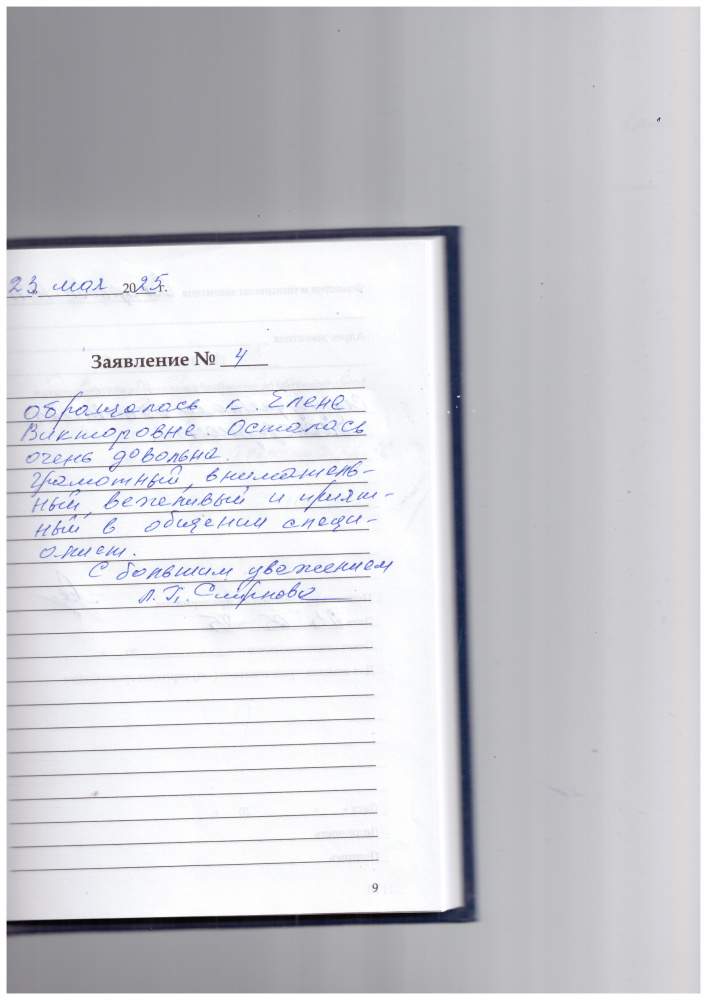 23 мая 2025г.
Заявление № 4
обращалась к Елене
Викторовне. Осталась
очень довольна.
Грамотный, вниматель-
ный, вежливый и прият-
ный в общении специ-
алист.
С большим уважением
Л. П. Смирнова
9